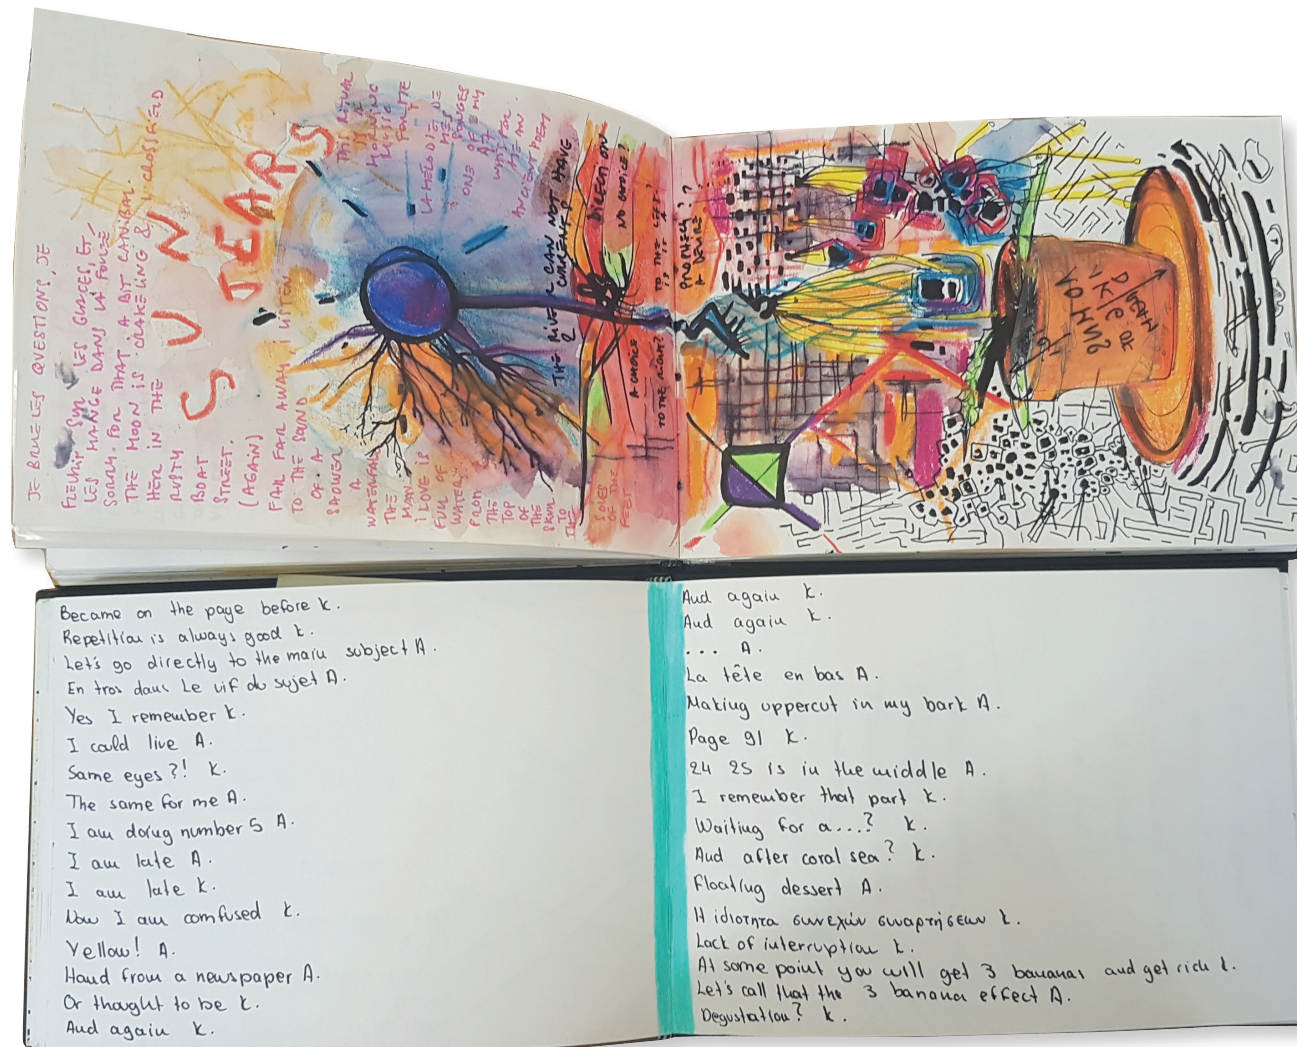 JE BRULE LES QUESTIONS, JE
FLEURIR SUR LES GLACES, ET,
LES MANGE DANS LA FOULÉE
SORRY FOR THAT A BIT CANIBAL.
THE MOON IS CRAKELING & I CROSSFIELD
HER IN THE
RUSTY
BOAT
STREET.
(AGAIN)
SUN
TEARS
FAR FAR AWAY, I LISTEN
TO THE SOUND
OF A
SHOWER
A
WATERFALL
THE
MAN
I LOVE IS
FULL OF
WATER
FROM
THE
TOP
OF
THE
SKIN
TO
THE
SOLES
OF THE
FEET
THIS RITUAL
MORNING
ONE OF MY
ANCIENT POEM
THE RIVER CAN NOT HAVE
2 CURRENTS
DIRECTION
NO CHOICE?
A CHOICE
TO THE RIGHT?
TO THE LEFT?
IS IT A
PROPHECY?
A DESIRE
Became on the page before k.
Repetition is always good k.
Let's go directly to the main subject A.
En tros dans Le vif du sujet A.
Yes I remember k.
I could live A.
Same eyes?! k.
The same for me A.
I am doing number 5 A.
I am late A.
I am late k.
Now I am comfused k.
Yellow! A.
Hand from a newspaper A.
Or thought to be k.
And again k.
And again k.
And again k.
... A.
La tête en bas A.
Making uppercut in my bark A.
Page 91 k.
24 25 is in the middle A.
I remember that part k.
Waiting for a...? k.
And after coral sea? k.
Floating dessert A.
Η ιδιότητα συνεχών συναρτήσεων k.
Lack of interruption k.
At some point you will get 3 bananas and get rich k.
Let's call that the 3 banana effect A.
Degustation? k.